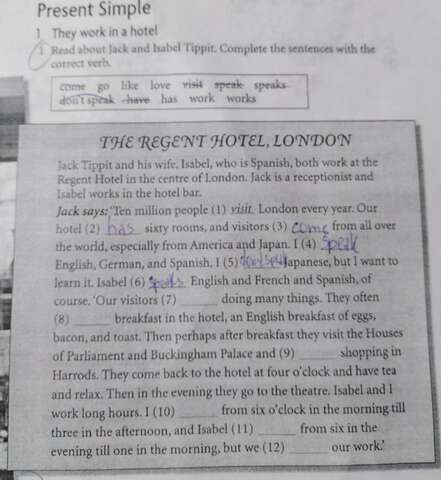 Present Simple
1 They work in a hotel
1 Read about Jack and Isabel Tippit. Complete the sentences with the
correct verb.
come go like love visit speak speaks
don't speak have has work works
THE REGENT HOTEL, LONDON
Jack Tippit and his wife, Isabel, who is Spanish, both work at the
Regent Hotel in the centre of London. Jack is a receptionist and
Isabel works in the hotel bar.
Jack says: 'Ten million people (1) visit London every year. Our
hotel (2) has sixty rooms, and visitors (3) come from all over
the world, especially from America and Japan. I (4) speak
English, German, and Spanish, I (5) don't speak Japanese, but I want to
learn it. Isabel (6) speaks English and French and Spanish, of
course. 'Our visitors (7) ______ doing many things. They often
(8) ______ breakfast in the hotel, an English breakfast of eggs,
bacon, and toast. Then perhaps after breakfast they visit the Houses
of Parliament and Buckingham Palace and (9) ______ shopping in
Harrods. They come back to the hotel at four o'clock and have tea
and relax. Then in the evening they go to the theatre. Isabel and I
work long hours. I (10) ______ from six o'clock in the morning till
three in the afternoon, and Isabel (11) ______ from six in the
evening till one in the morning, but we (12) ______ our work.'